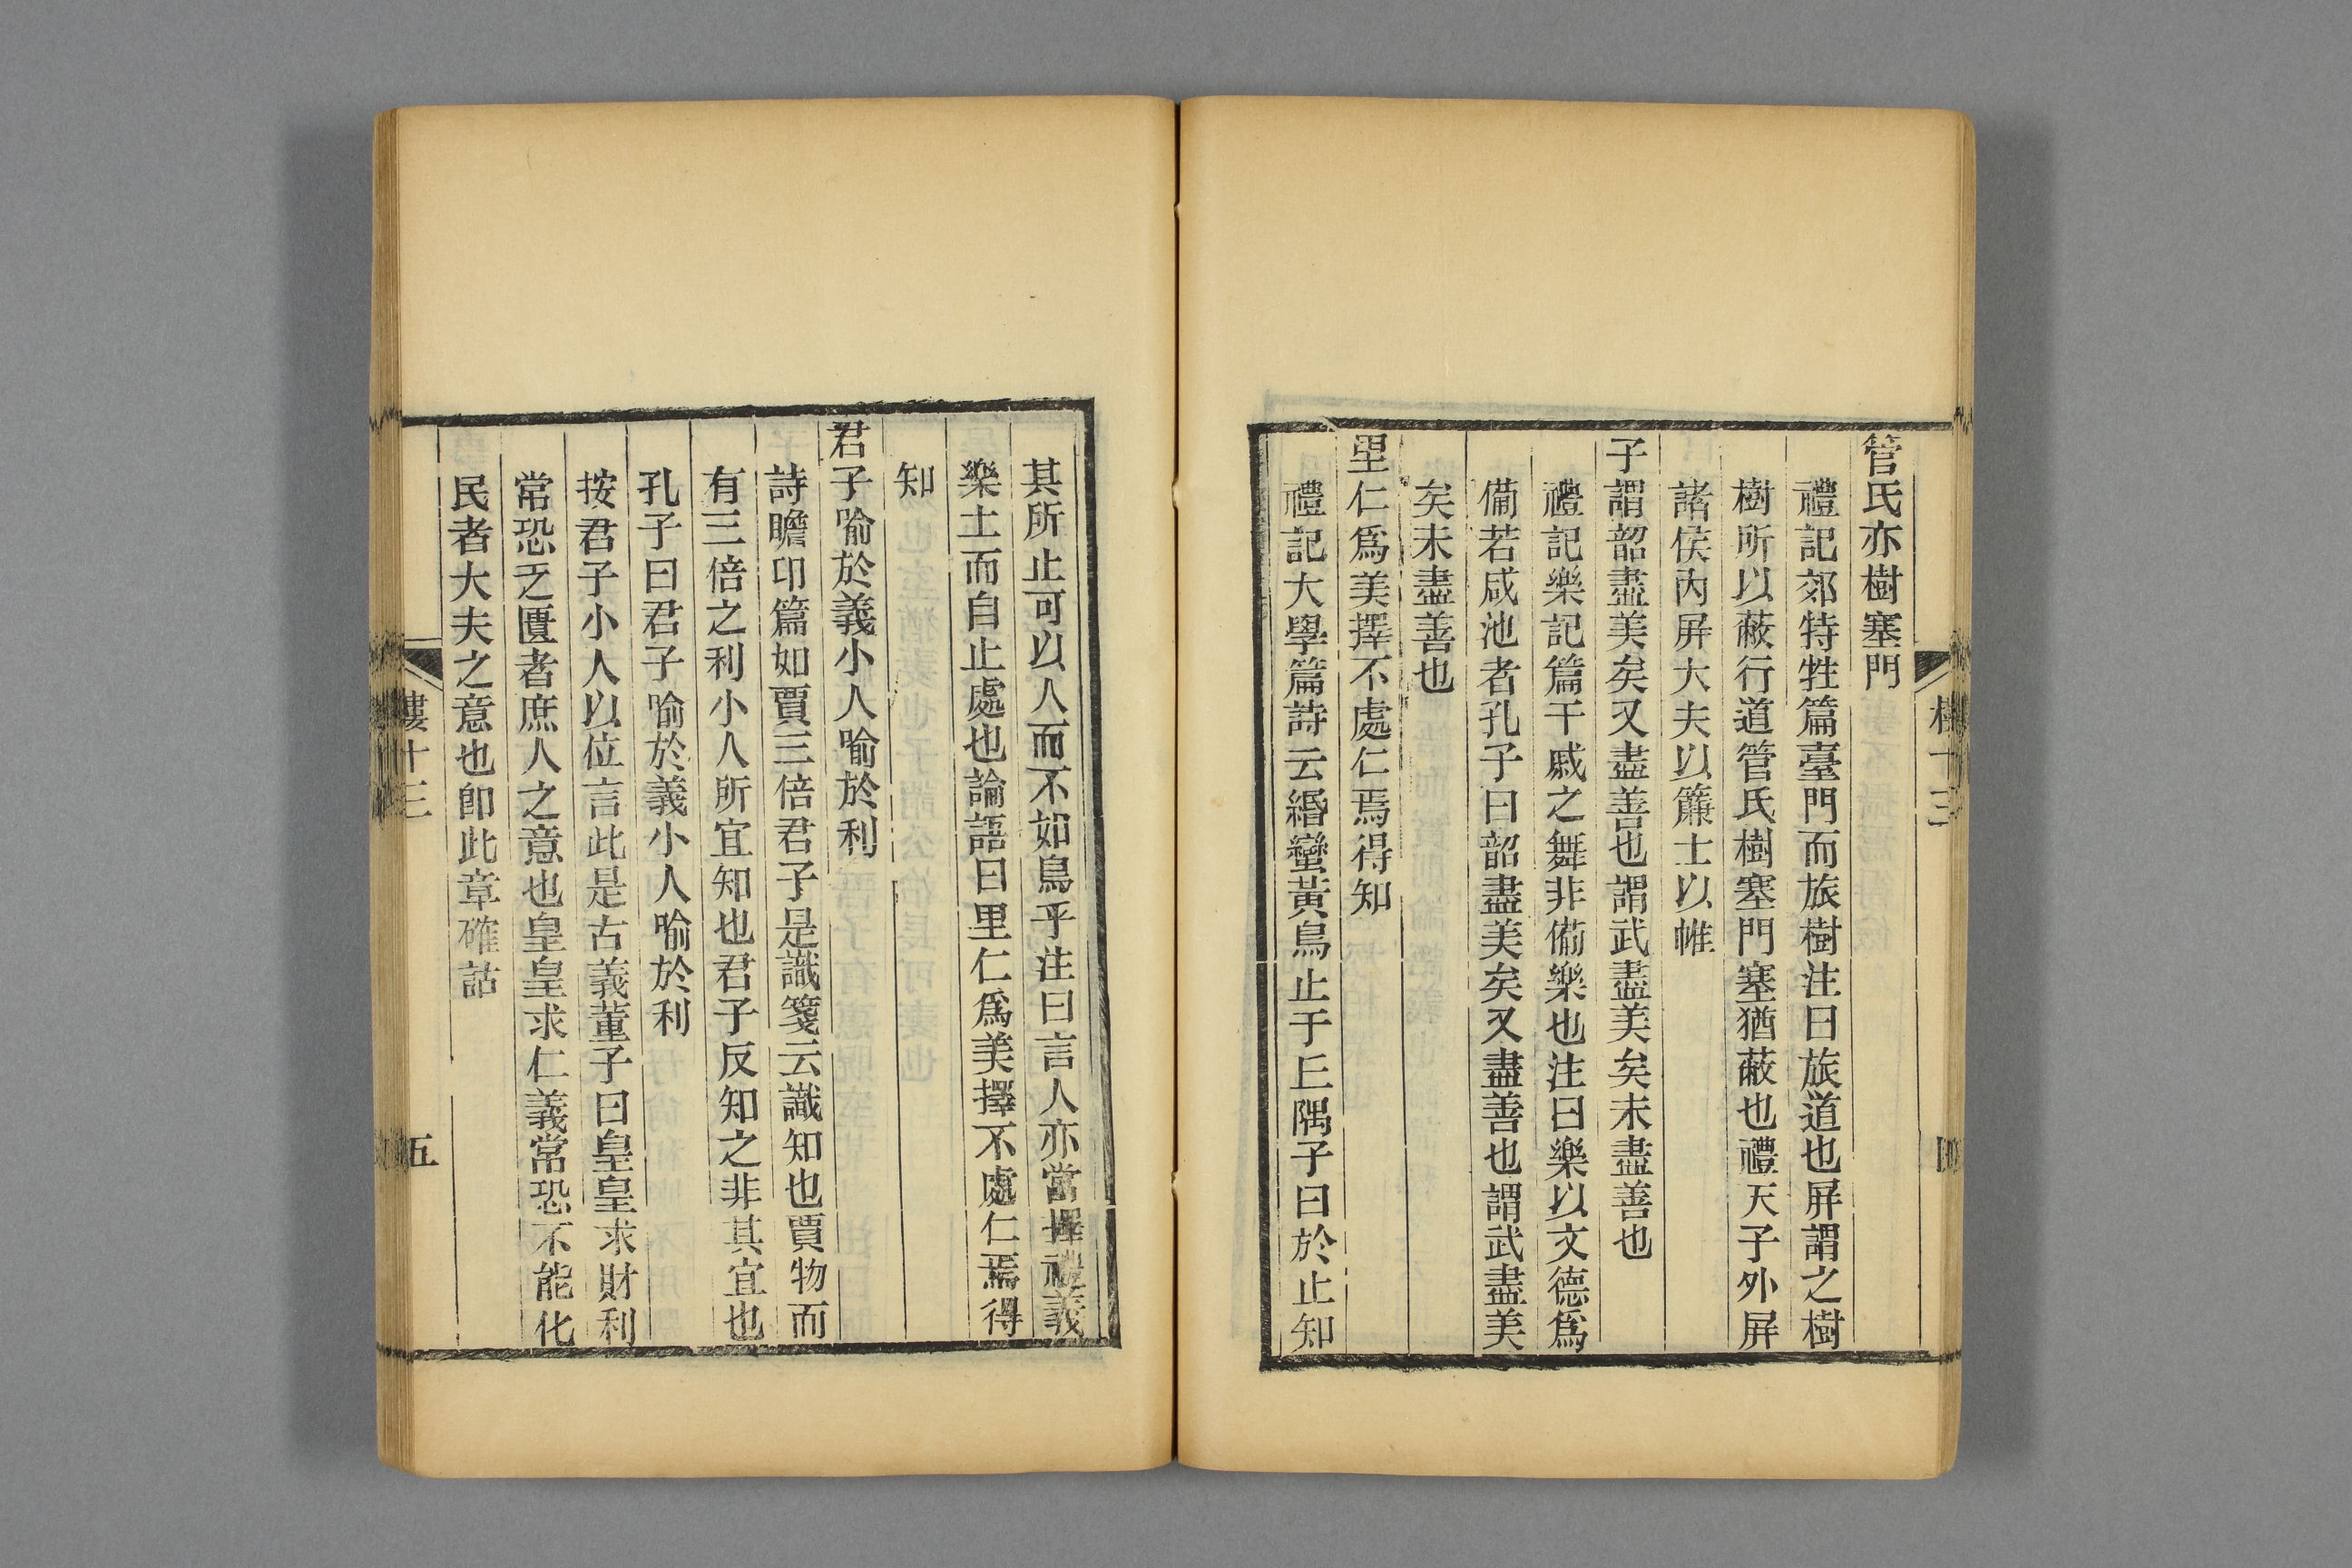 管氏亦樹塞門
禮記郊特牲篇臺門而旅樹注曰旅道也屏謂之樹
樹所以蔽行道管氏樹塞門塞猶蔽也禮天子外屏
諸侯內屏大夫以簾士以帷
子謂韶盡美矣又盡善也謂武盡美矣未盡善也
禮記樂記篇干戚之舞非備樂也注曰樂以文德爲
備若咸池者孔子曰韶盡美矣又盡善也謂武盡美
矣未盡善也
里仁爲美擇不處仁焉得知
禮記大學篇詩云緡蠻黃鳥止于丘隅子曰於止知
其所止可以人而不如鳥乎注曰言人亦當擇禮義
樂土而自止處也論語曰里仁爲美擇不處仁焉得
知
君子喻於義小人喻於利
詩瞻卬篇如賈三倍君子是識箋云識知也賈物而
有三倍之利小人所宜知也君子反知之非其宜也
孔子曰君子喻於義小人喻於利
按君子小人以位言此是古義董子曰皇皇求財利
常恐乏匱者庶人之意也皇皇求仁義常恐不能化
民者大夫之意也卽此章確詁
樓十三
五